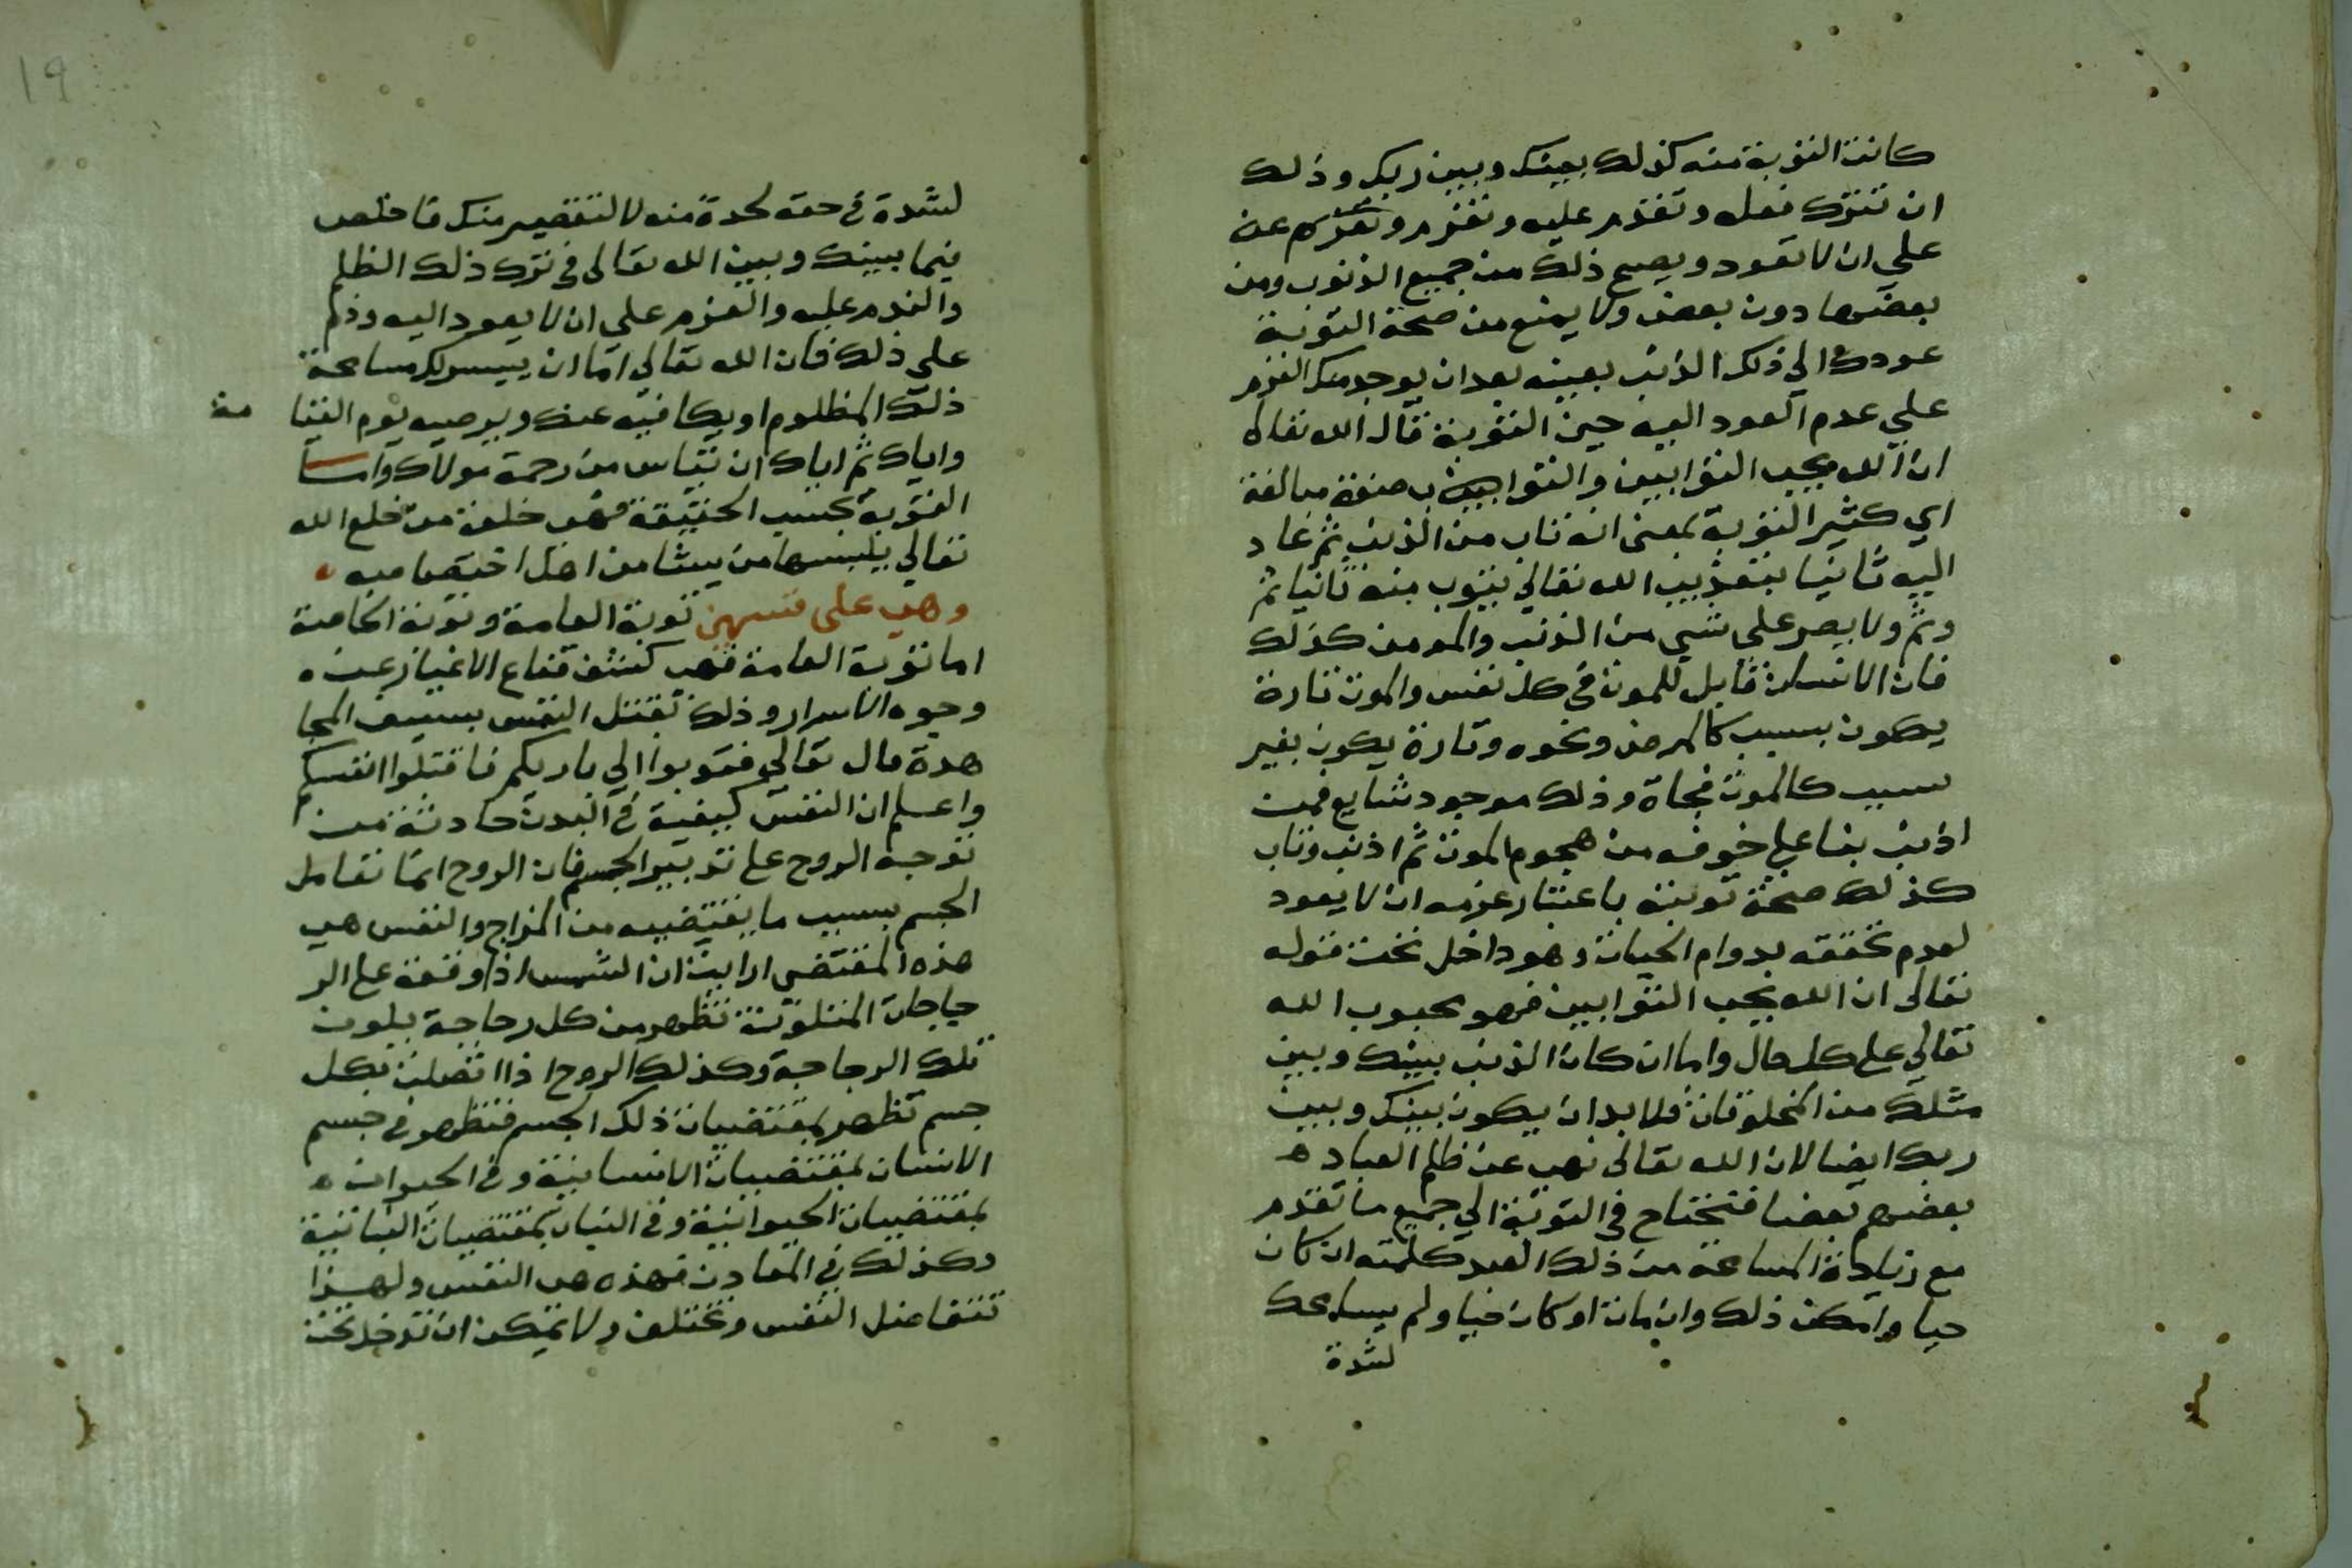 كانت التوبة منه كذلك بينك وبين ربك وذلك
ان تترك فعله وتقدم عليه وتقدم وتعزم عن
على ان لا تعود ويصح ذلك من جميع الذنوب ومن
بعضها دون بعض ولا يمنع من صحة التوبة
عودك الي ذلك الذنب بعينه بعد ان يوجد منك العزم
علي عدم العود اليه حين التوبة قال الله تعالى
ان الله يحب التوابين والتواب صفة مبالغة
اي كثير التوبة بمعنى انه تاب من الذنب ثم عاد
اليه ثانيا بتقدير الله تعالي بتوب منه ثانيا ثم
وثم ولا يصر علي شي من الذنب والمومن كذلك
فان الانسان قابل للموت في كل نفس والموت تارة
يكون بسبب كالمرض ونحوه وتارة يكون بغير
سبب كالموت فجاة وذلك موجود شايع فمن
اذنب بنا علي خوفه من هجوم الموت ثم اذنب وتاب
كذلك صحة توبته باعتبار عزمه ان لا يعود
لعدم تحققه بدوام الحيات وهو داخل تحت قوله
تعالى ان الله يحب التوابين فهو محبوب الله
تعالي على كل حال واما ان كان الذنب بينك وبين
مثلك من المخلوقات فلا بد ان يكون بينك وبين
ربك ايضا لان الله تعالى نهي عن ظلم العباد
بعضهم بعضا فتحتاج في التوبة الي جميع ما تقدم
مع زيادة المسامحة من ذلك العبد كلمته ان كان
حيا وامكن ذلك وان مات او كان حيا ولم يسامحك
لشدة
19
لشدة في حقه لحدة منه لا لتقصير منك فاخلص
فيما بينك وبين الله تعالى في ترك ذلك الظلم
والندم عليه والعزم علي ان لا يعود اليه ودم
على ذلك فان الله تعالي اما ان ييسر لك مسامحة
ذلك المظلوم او يكافيه عنك ويرضيه يوم القيا مة
واياك ثم اياك ان تياس من رحمة مولاك واما
التوبة بحسب الحقيقة فهي خلعة من خلع الله
تعالي يلبسها من يشا من اهل اختصاصه
وهي على قسمين توبة العامة وتوبة الخاصة
اما توبة العامة فهي كشف قناع الاغيار عن
وجوه الاسرار وذلك بقتل النفس بسيف المجا
هدة قال تعالي فتوبوا الي باريكم فاقتلوا انفسكم
واعلم ان النفس كيفية في البدن حادثة من
توجه الروح على تدبير الجسم فان الروح انما تعامل
الجسم بسبب ما يقتضيه من المزاج والنفس هي
هذه المقتضى ارايت ان الشمس اذا وقعة على الز
جاجات المتلونة تظهر من كل زجاجة بلون
تلك الزجاجة وكذلك الروح اذا اتصلت بكل
جسم تظهر بمقتضيات ذلك الجسم فتظهر في جسم
الانسان بمقتضيات الانسانية وفي الحيوان
بمقتضيات الحيوانية وفي النبات بمقتضيات النباتية
وكذلك في المعادن فهذه هي النفس ولهذا
تتفاضل النفس وتختلف ولا يمكن ان تدخل تحت